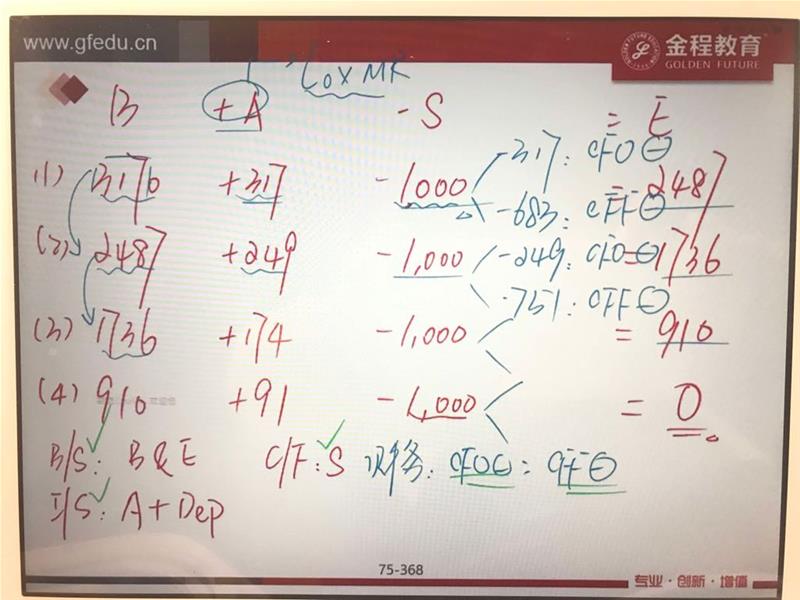 www.gfedu.cn
金程教育
GOLDEN FUTURE
%Lo×MR
B +A -S = E
(1) 3170 +317 -1000 = 2487
-317: CFO⊖
-683: CFF⊖
(2) 2487 +249 -1,000 = 1736
-249: CFO⊖
-751: CFF⊖
(3) 1736 +174 -1,000 = 910
(4) 910 +91 -1,000 = 0
B/S: B & E C/F: S 财务: CFO⊖ = CFF⊖
I/S: A + Dep
75-368
专业·创新·增值